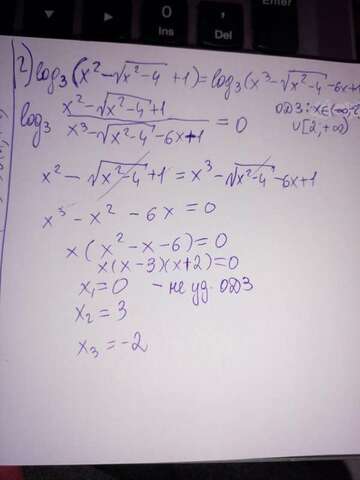 0
Ins
Del
Enter
2) log₃(x² - √(x²-4) + 1) = log₃(x³ - √(x²-4) - 6x+1
log₃ (x² - √(x²-4) + 1)/(x³ - √(x²-4) - 6x+1) = 0
ОДЗ: x∈(-∞;
∪[2;+∞)
x² - √(x²-4) + 1 = x³ - √(x²-4) - 6x+1
x³ - x² - 6x = 0
x(x² - x - 6) = 0
x(x-3)(x+2)=0
x₁ = 0 - не уд. ОДЗ
x₂ = 3
x₃ = -2